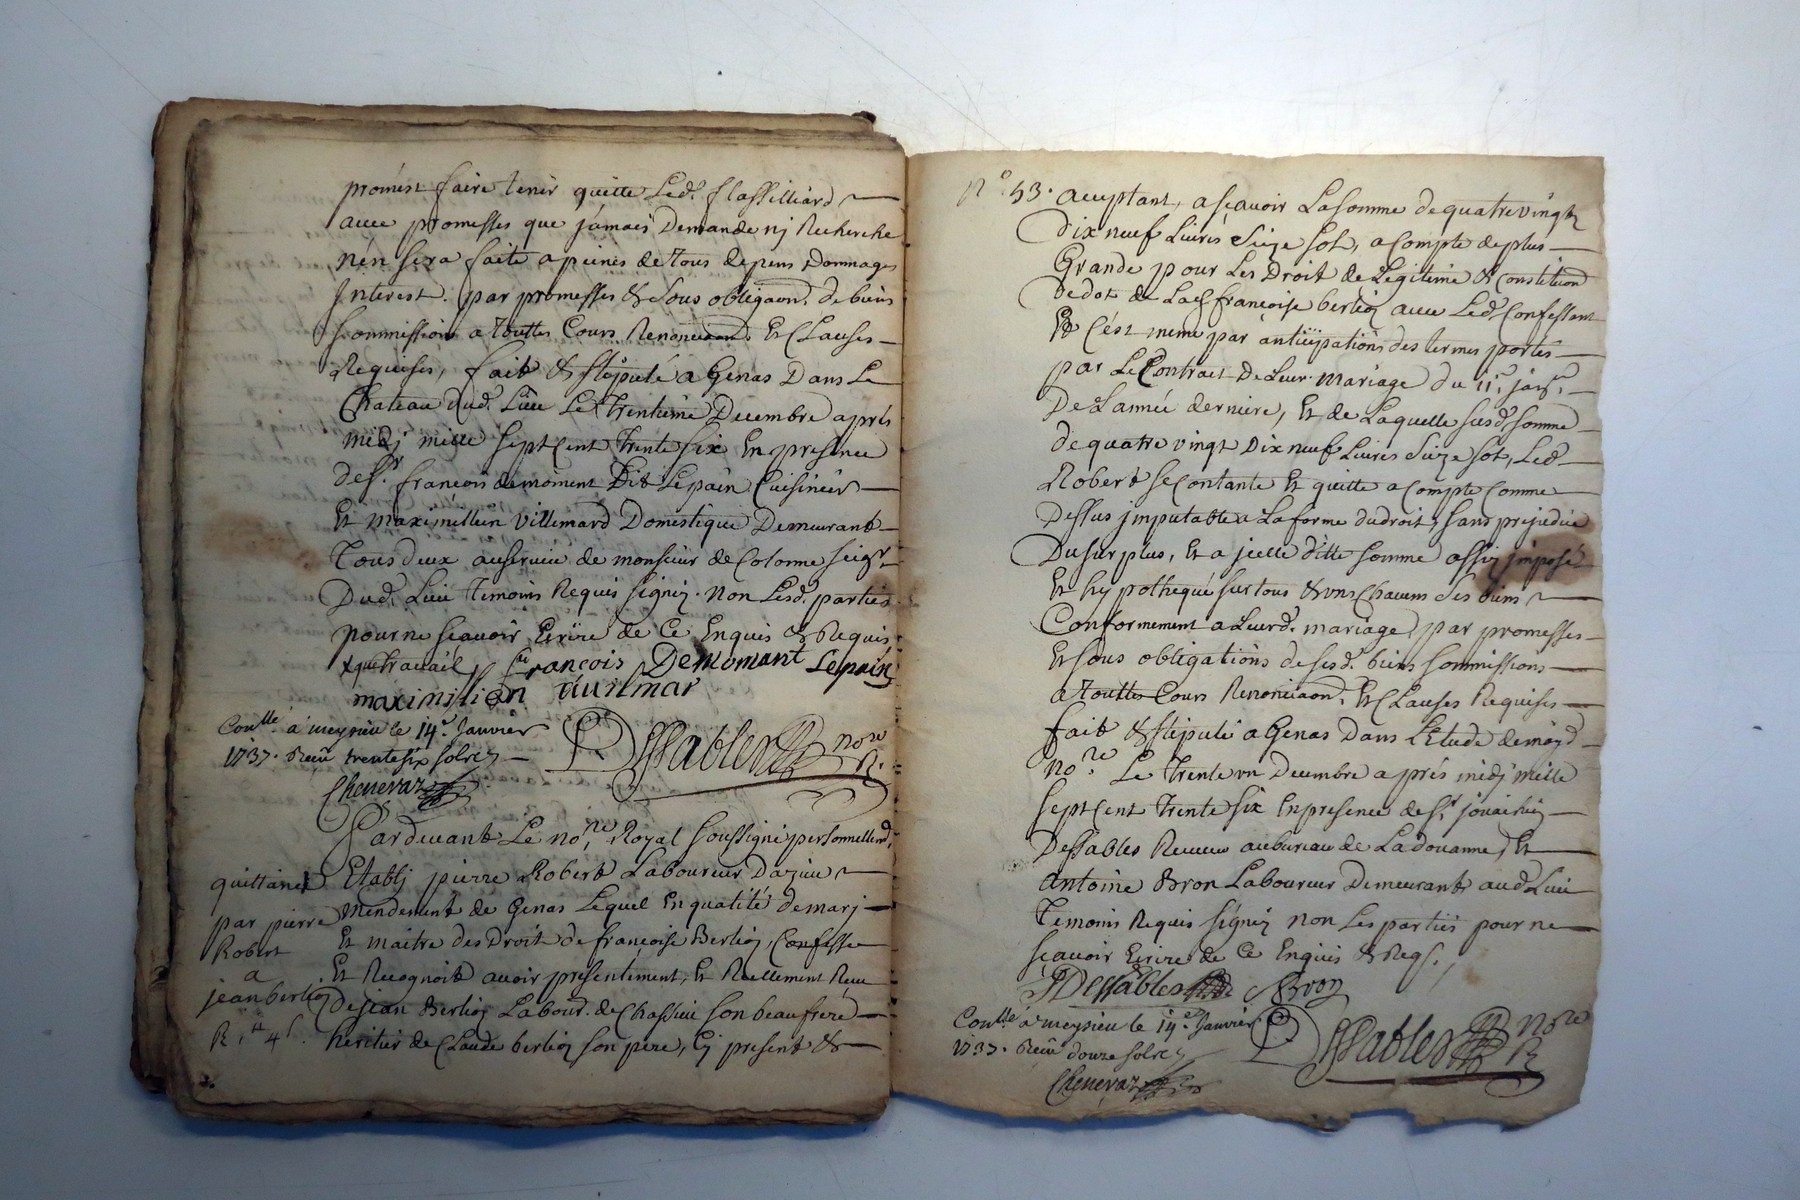 promest faire tenir quitte Led. flassilliard
avec promesses que jamais Demande nj Recherche
nen sera faite a peines de tous depens Dommages
Interest. par promesses & sous obligaon. de biens
sommissions a touttes Cours Renonciaons Et Clauses
Requises, fait & stipulé a Genas Dans Le
Chateau dud. Lieu Le Trentieme Decembre aprés
midj mille sept Cent Trente six En presence
de sr. francois demoment Dit Lepain Cuisinier
Et maximillien villemard Domestique Demeurant
Tous deux au service de monsieur de Colonne seigr.
Dud. Lieu Temoins Requis signez. non Lesd. parties
pour ne scavoir Ecrire de Ce Enquis & Requis
francois Demomant Lepain
maximilien
Conlle. à meysieu le 14e. Janvier
1737. Reçu trente six sols
Chenevaz
Dessables nore
R.
Pardevant Le nore. Royal soussigné personnellemt.
quittance Etablj pierre Robert Laboureur Dazieu
par pierre mendement de Genas Lequel En qualité de marj
Robert Et maitre des Droit de francoise Berlioz, Confesse
a Et Recognoit avoir presentement, Et Reellement Receu
jean berlioz De jean Berlioz Labour. de Chassieu son beaufrere
heritier de Claude berlioz son pere, Cy present &
No. 53. acceptant, a scavoir La somme de quatre vingt
Dix neuf Livres seize sols, a Compte de plus
Grande pour Les Droit de Legitime & Constitution
de dot de Lad. francoise berlioz avec Led. Confessent
Et C'est meme par anticipations des termes portés
par Le Contract De Leur mariage du 11e.
De Lannée derniere, Et de Laquelle susd. somme
de quatre vingt Dix neuf Livres seize sols, Led.
Robert se Contante Et quitte a Compte Comme
Dessus jmputable a La forme du droit, sans prejudice
Du surplus, Et a jcelle ditte somme assis jmposé
Et hypothequé sur tous & uns Chacuns ses biens
Conformement a Leurd. mariage, par promesses
Et sous obligations de sesd. biens sommissions
a touttes Cours Renonciaons. Et Clauses Requises
fait & stipulé a Genas Dans L'Etude de moyd.
nore. Le Trente un Decembre aprés midj mille
sept Cent Trente six En presence de sr.
Dessables Receveur au bureau de La douanne, Et
Antoine Bron Laboureur Demeurants aud. Lieu
Temoins Requis signez non Les parties pour ne
scavoir Ecrire de Ce Enquis & Reqs.
Dessables Bron
Conlle. à meysieu le 14e. Janvier
1737. Reçu douze sols
Chenevaz
Dessables nore
R